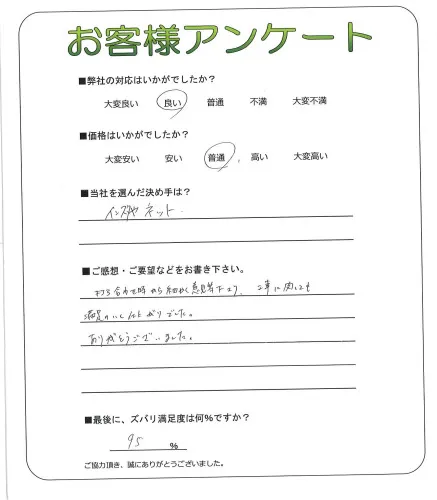 お客様アンケート
■弊社の対応はいかがでしたか?
大変良い 良い 普通 不満 大変不満
■価格はいかがでしたか?
大変安い 安い 普通 高い 大変高い
■当社を選んだ決め手は?
ネット
■ご感想・ご要望などをお書き下さい。
打ち合わせ時から細かく意見等下さり、工事に関しても
満足のいく仕上がりでした。
ありがとうございました。
■最後に、ズバリ満足度は何%ですか?
95 %
ご協力頂き、誠にありがとうございました。